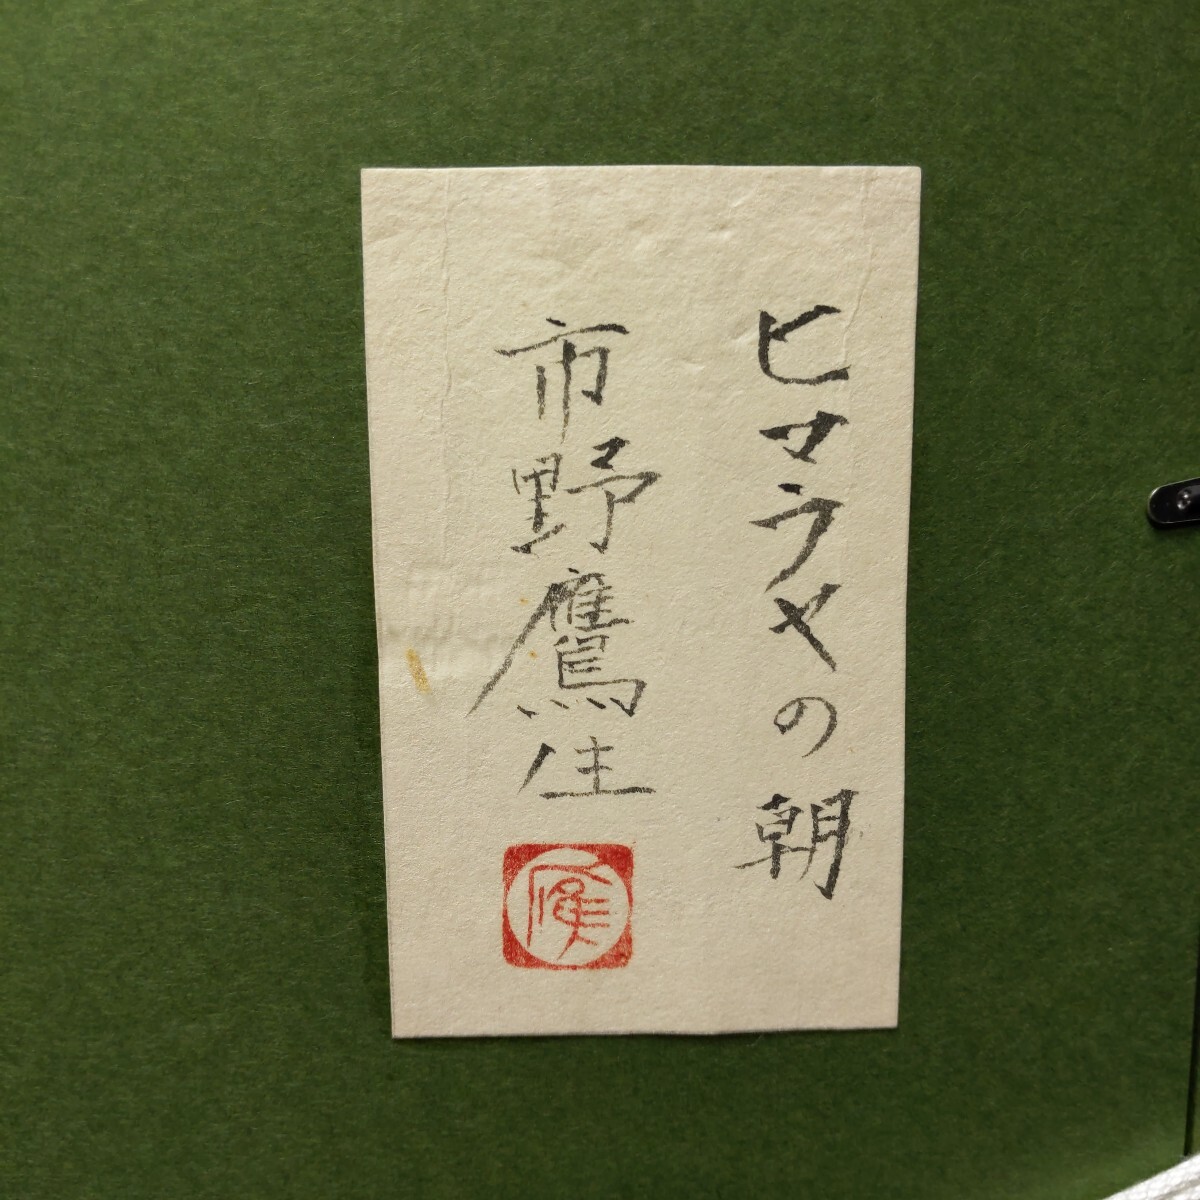 ヒマラヤの朝
市野鷹生